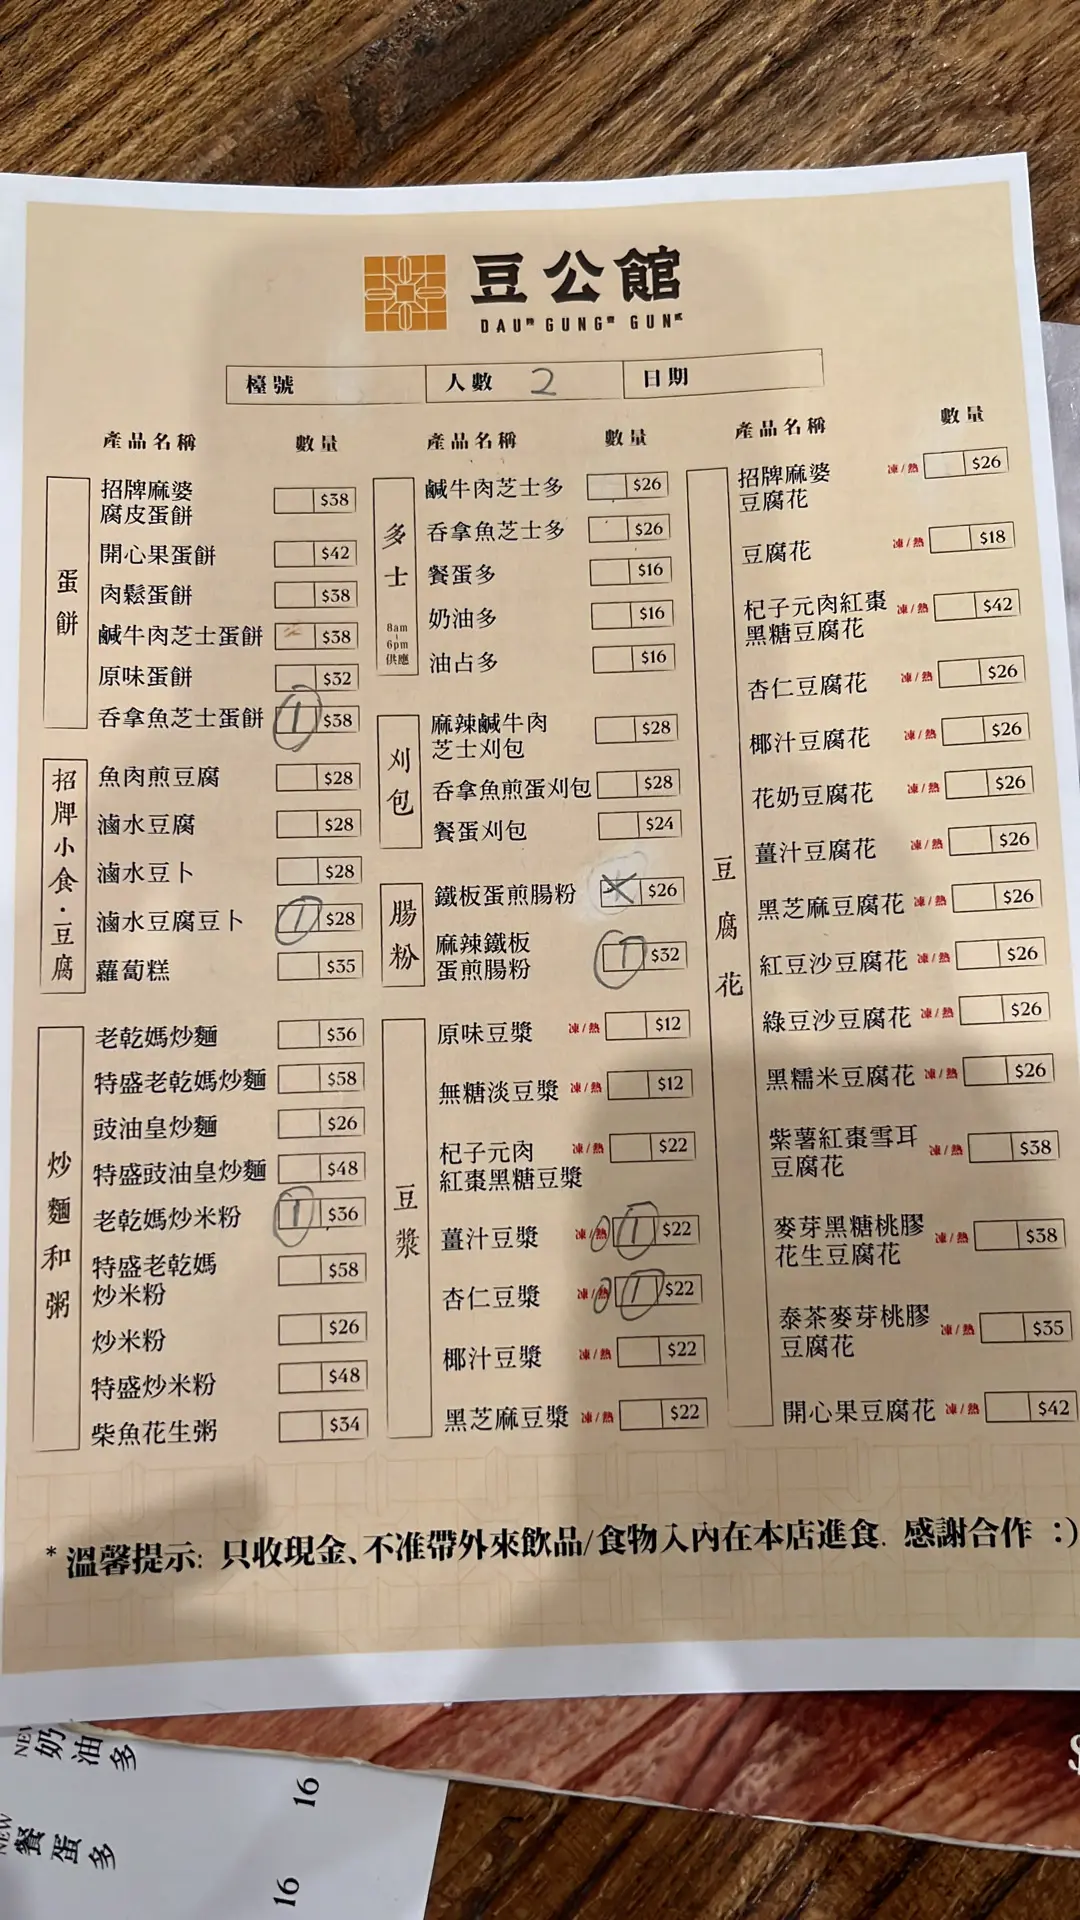 豆公館
DAU GUNG GUN
檯號
人數 2
日期
產品名稱 數量
蛋餅
招牌麻婆
腐皮蛋餅 $38
開心果蛋餅 $42
肉鬆蛋餅 $38
鹹牛肉芝士蛋餅 $38
原味蛋餅 $32
吞拿魚芝士蛋餅 1 $38
招牌小食·豆腐
魚肉煎豆腐 $28
滷水豆腐 $28
滷水豆卜 $28
滷水豆腐豆卜 1 $28
蘿蔔糕 $35
炒麵和粥
老乾媽炒麵 $36
特盛老乾媽炒麵 $58
豉油皇炒麵 $26
特盛豉油皇炒麵 $48
老乾媽炒米粉 1 $36
特盛老乾媽
炒米粉 $58
炒米粉 $26
特盛炒米粉 $48
柴魚花生粥 $34
產品名稱 數量
多士
8am
-
6pm
供應
鹹牛肉芝士多 $26
吞拿魚芝士多 $26
餐蛋多 $16
奶油多 $16
油占多 $16
刈包
麻辣鹹牛肉
芝士刈包 $28
吞拿魚煎蛋刈包 $28
餐蛋刈包 $24
腸粉
鐵板蛋煎腸粉 $26
麻辣鐵板
蛋煎腸粉 1 $32
豆漿
原味豆漿 凍/熱 $12
無糖淡豆漿 凍/熱 $12
杞子元肉 凍/熱 $22
紅棗黑糖豆漿
薑汁豆漿 凍/熱 1 $22
杏仁豆漿 凍/熱 1 $22
椰汁豆漿 凍/熱 $22
黑芝麻豆漿 凍/熱 $22
產品名稱 數量
豆腐花
招牌麻婆 凍/熱 $26
豆腐花
豆腐花 凍/熱 $18
杞子元肉紅棗 凍/熱 $42
黑糖豆腐花
杏仁豆腐花 凍/熱 $26
椰汁豆腐花 凍/熱 $26
花奶豆腐花 凍/熱 $26
薑汁豆腐花 凍/熱 $26
黑芝麻豆腐花 凍/熱 $26
紅豆沙豆腐花 凍/熱 $26
綠豆沙豆腐花 凍/熱 $26
黑糯米豆腐花 凍/熱 $26
紫薯紅棗雪耳 凍/熱 $38
豆腐花
麥芽黑糖桃膠 凍/熱 $38
花生豆腐花
泰茶麥芽桃膠 凍/熱 $35
豆腐花
開心果豆腐花 凍/熱 $42
*溫馨提示: 只收現金、不准帶外來飲品/食物入內在本店進食. 感謝合作 :)
NEW
奶油多 16
NEW
餐蛋多 16
$